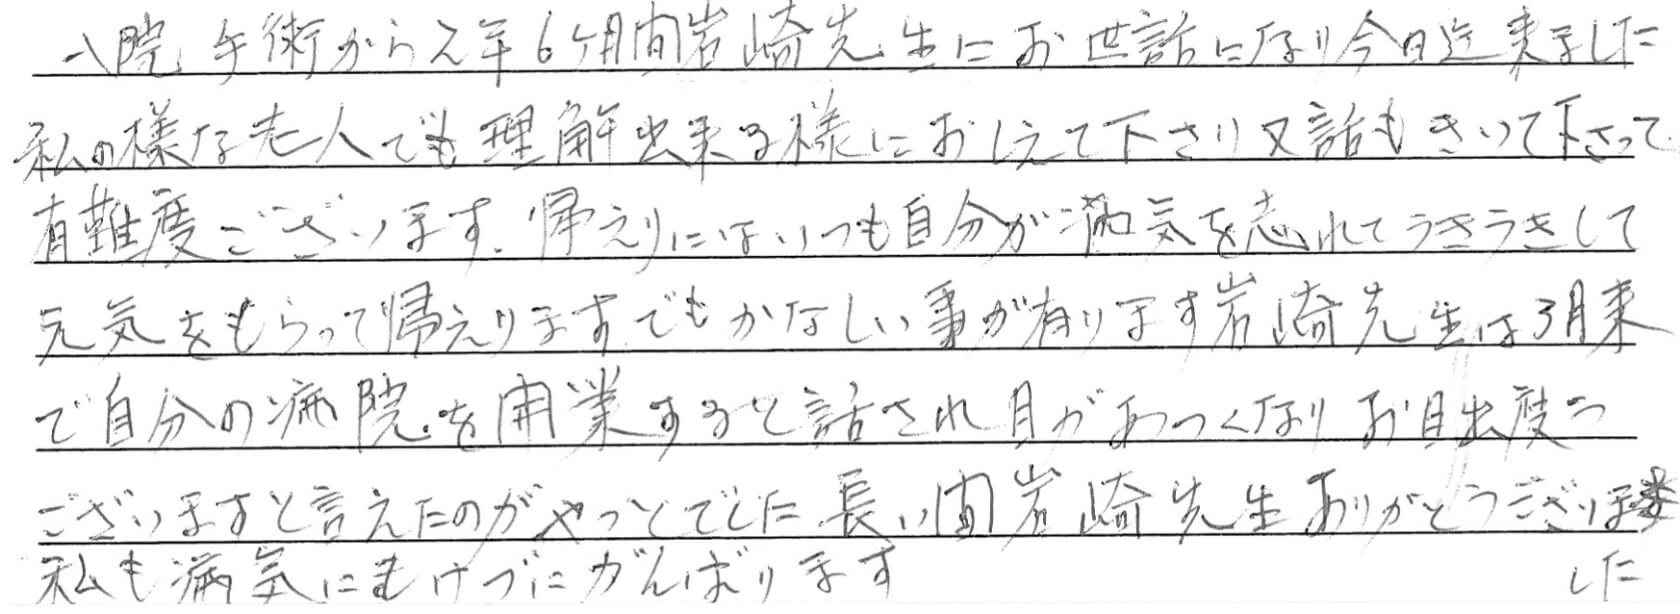 入院手術から2年6ヶ月間岩崎先生にお世話になり今日迄来ました
私の様な老人でも理解出来る様におしえて下さり又話もきいて下さって
有難度ございます。帰えりにはいつも自分が病気を忘れてうきうきして
元気をもらって帰えります。でもかなしい事が有ります岩崎先生は3月末
で自分の病院を開業すると話され目があつくなりお目出度う
ございますと言えたのがやっとでした。長い間岩崎先生ありがとうございま
した
私も病気にまけづにがんばります